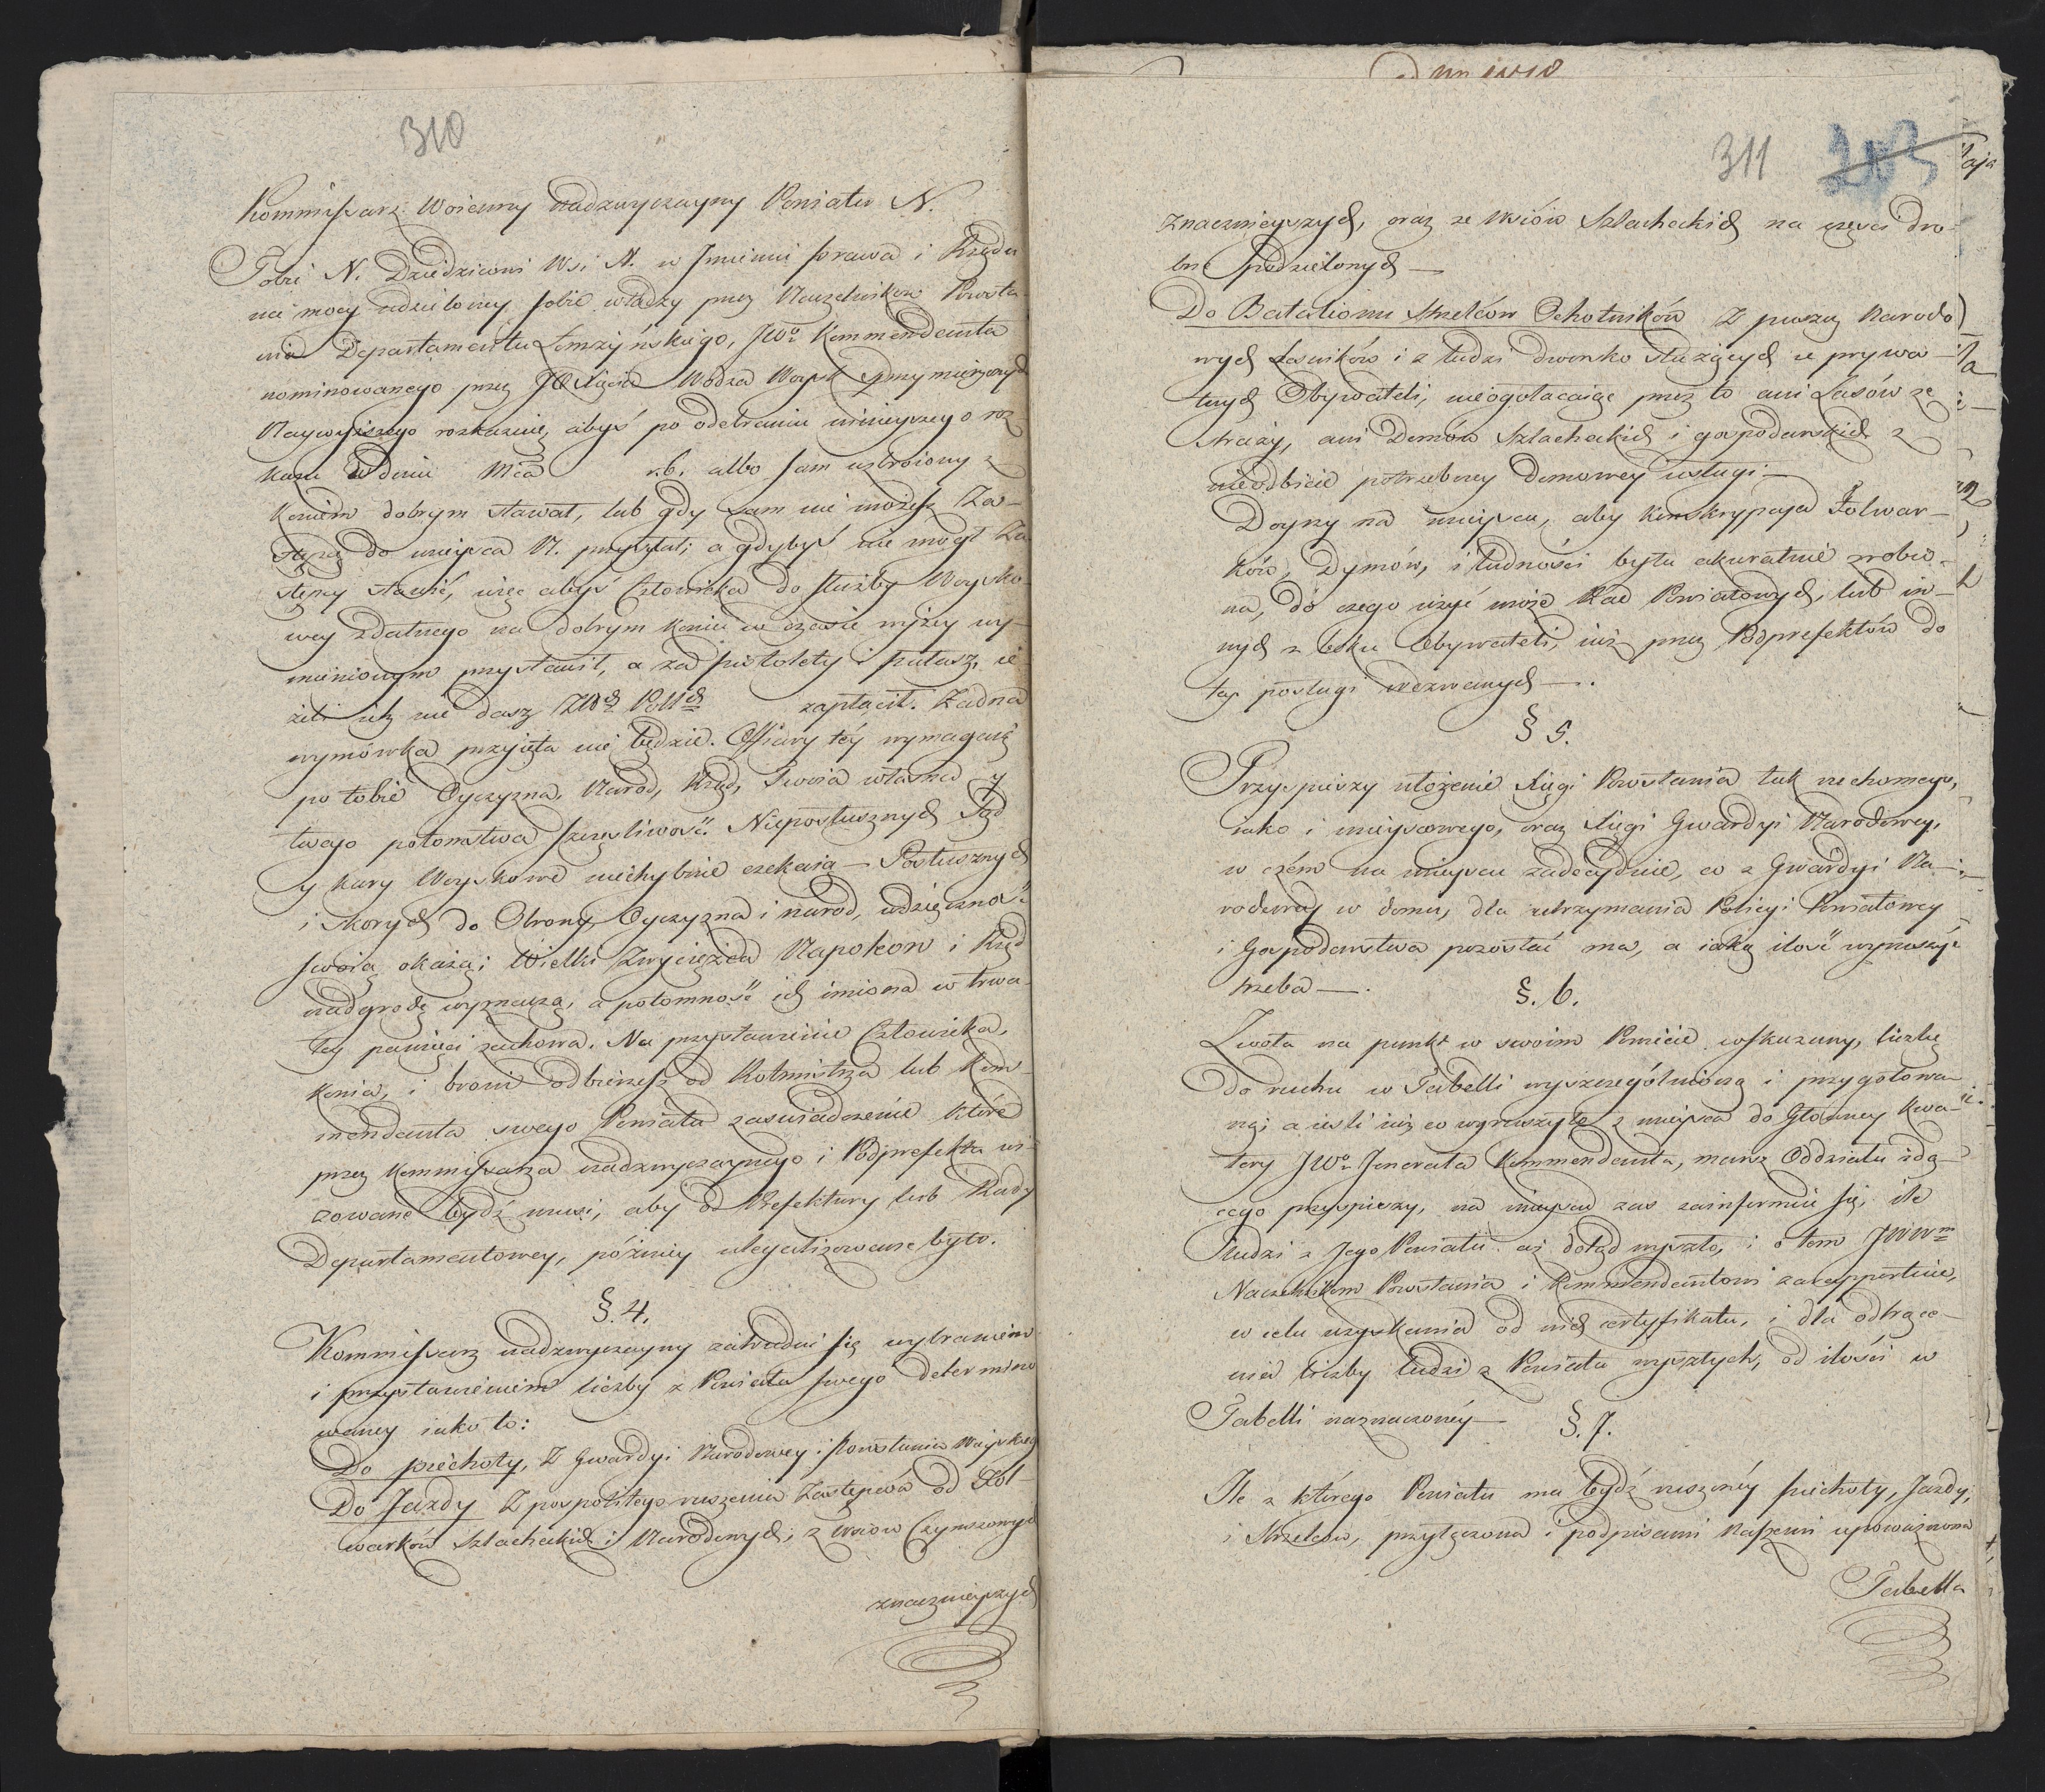 310
Kommissarz Woienny nadzwyczayny Powiatu N.
Tobie N. Dziedzicowi Wsi N. w Imieniu prawa i Rządu
na mocy udzieloney sobie władzy przez Naczelników Powsta-
nia Departamentu Łomzyńskiego, JWo Kommendanta
nominowanego przez JO Xięcia Wodza Woysk Sprzymierzonych
Naywyższego rozkazuię, abyś po odebraniu ninieyszego roz-
kazu w dniu Mca r.b. albo sam uzbroiony z
koniem dobrym stawał, lub gdy sam nie możesz Za-
stępcę do mieysca N. przysłał; a gdybyś nie mógł Za-
stępcy stawić, więc abyś Człowieka do służby Woysko-
wey zdatnego na dobrym koniu w czasie wyżey wy-
mienionym przystawił, a za pistolety i pałasz, ie-
żeli ich nie dasz Złłch Pollch zapłacił. Żadna
wymówka przyięta nie będzie. Offiary téy wymagaią
po tobie Oyczyzna, Naród, Rząd, Twoia własna y
twego potomstwa szczęśliwość. Nieposłusznych Sąd
y kary Woyskowe niechybnie czekaią — Posłusznych
i skorych do Obrony Oyczyzna i naród, wdzięczność
swoią okażą; Wielki Zwycięzca Napoleon i Rząd
nadgrodę wyznaczą, a potomność ich imiona w trwa-
łey pamięci zachowa. Na przystawienie Człowieka,
konia, i broni odbierzesz od Rotmistrza lub Kom-
mendanta swego Powiatu zaświadczenie które
przez Kommissarza nadzwyczaynego i Podprefekta wi-
zowane bydź musi, aby od Prefektury lub Rady
Departamentowey, późniey ulegalizowane było.
§. 4.
Kommissarz nadzwyczayny zatrudni się wybraniem
i przystawieniem liczby z Powiatu swego determino
waney iako to:
Do piechoty, Z Gwardyi Narodowey i Powstania Mieyskieg
Do Jazdy Z pospolitego ruszenia Zastępców od Fol-
warków Szlacheckich i Narodowych, z Wsiów Czynszowych
znacznieyszych
311 203
znacznieyszych, oraz ze Wsiów Szlacheckich na części dro-
bne podzielonych —
Do Batalionu Strzelców Ochotników Z puszcz Narodo
wych Leśników i z ludzi dworsko służących u prywa-
tnych Obywateli, nieogołacaiąc przez to ani Lasów ze
straży, ani Domów Szlacheckich i gospodarskich z
nieodbicie potrzebney domowey usługi. —
Doyrzy na mieyscu, aby konskrypcya Folwar-
ków, Dymów, i ludności była akuratnie zrobio-
na, do czego użyć może Rad Powiatowych, lub in-
nych z boku Obywateli, iuż przez Podprefektów do
tey posługi wezwanych —.
§ 5.
Przyspieszy ułożenie xięgi Powstania tak ruchomego,
iako i mieyscowego, oraz xięgi Gwardyi Narodowey,
w czém na mieyscu zadecyduie, co z Gwardyi Na-
rodowey w domu, dla utrzymania Policyi Powiatowey
i Gospodarstwa pozostać ma, a iaką ilość wynosić
trzeba —.
§. 6.
Zwoła na punkt w swoim Powiecie wskazany, liczbę
do ruchu w Tabelli wyszczególnioną i przygotowa-
ną; a iesli iuż co wyruszyło z mieysca do Główney Kwa-
tery JWo Jenerała Kommendanta, marsz Oddziału idą-
cego przyspieszy, na mieyscu zas zainformuie się, ile
ludzi z Jego Powiatu aż dotąd wyszło, i o tem JWWm
Naczelnikom Powstania i Kommendantowi zarapportuie,
w celu uzyskania od nich certyfikatu, i dla odtrące-
nia liczby ludzi z Powiatu wyszłych, od ilości w
Tabelli naznaczonéy —
§. 7.
Ile z którego Powiatu ma bydź ruszonéy piechoty, Jazdy,
i Strzelców, przyłączona i podpisami Naszemi upoważniona
Tabella